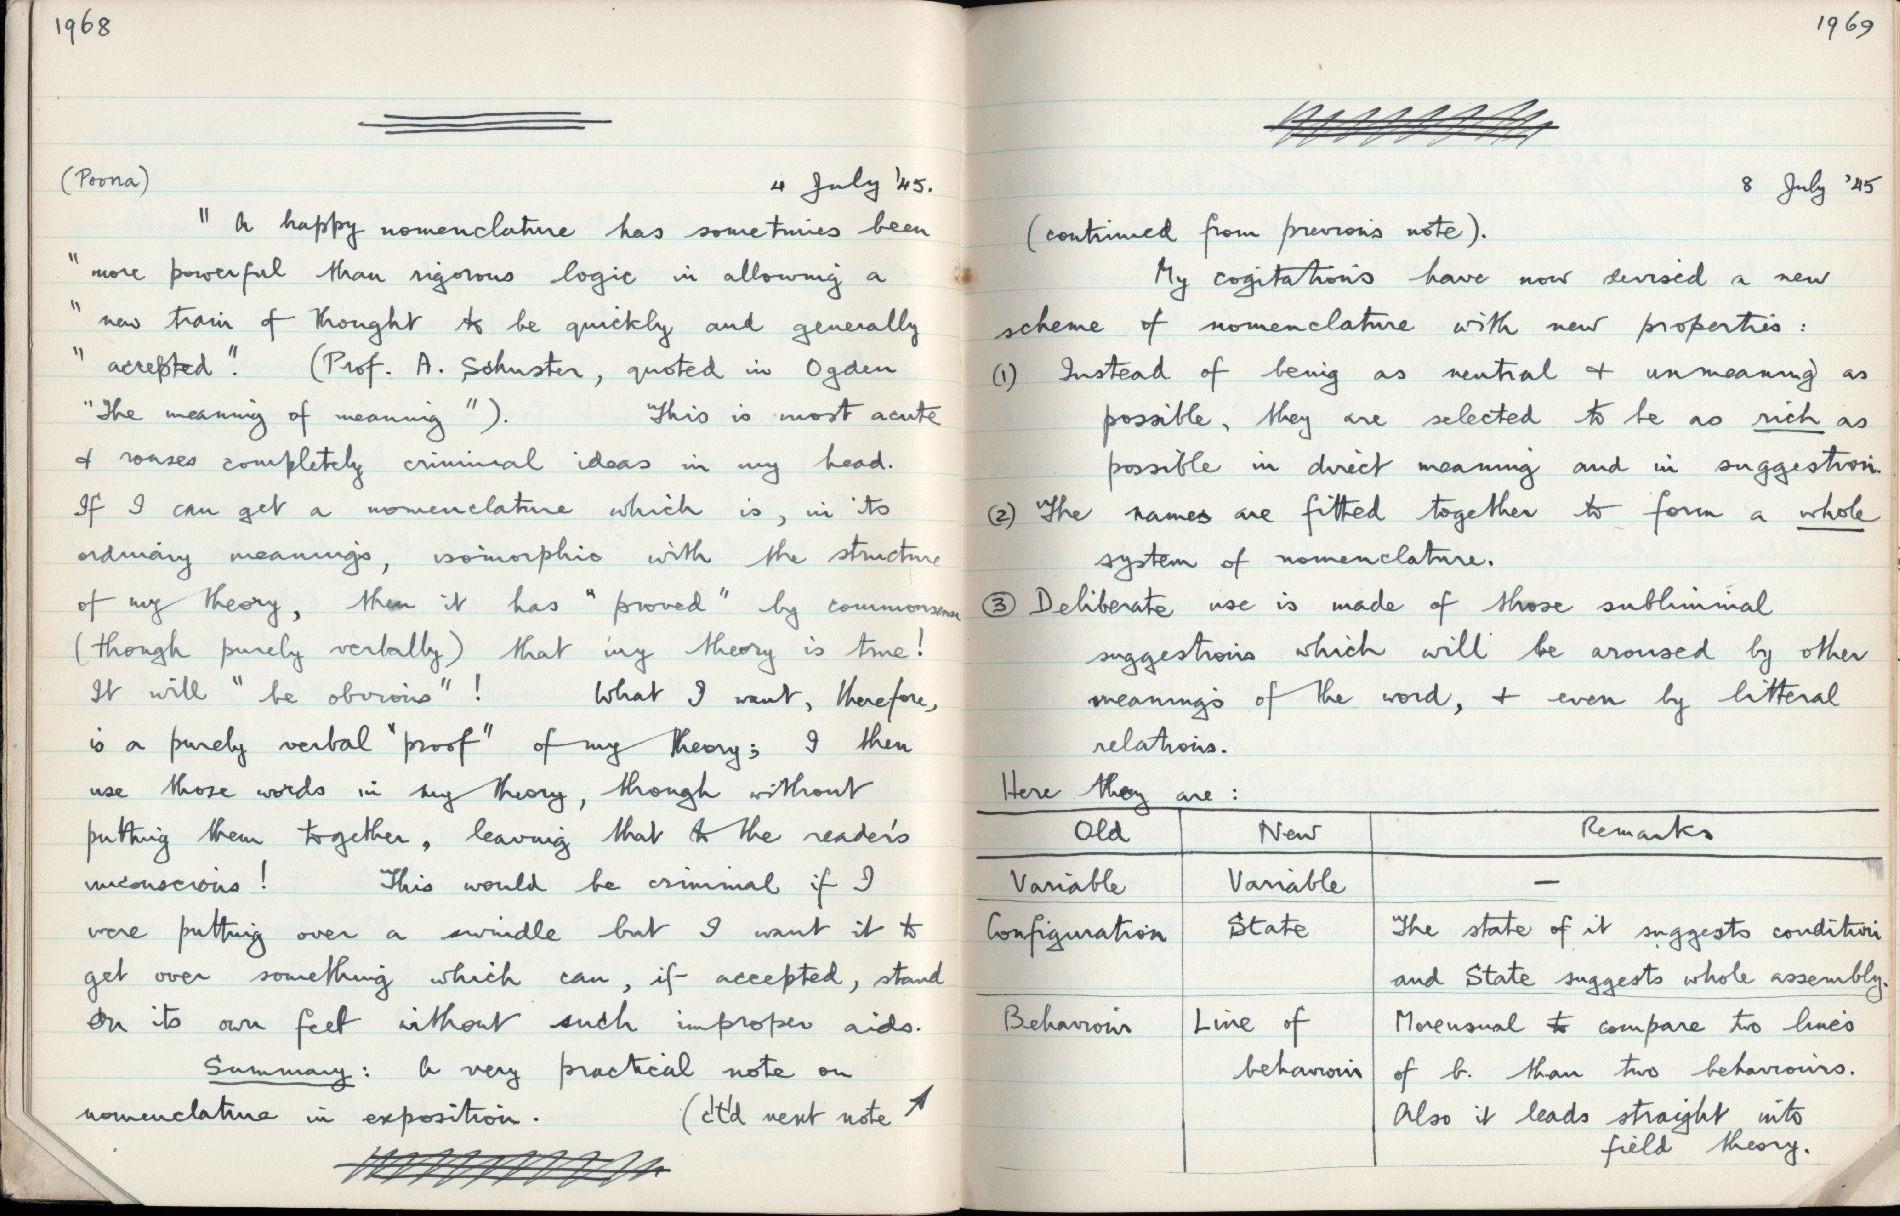 1968
(Poona) 4 July '45.
" A happy nomenclature has sometimes been
" more powerful than rigorous logic in allowing a
" new train of thought to be quickly and generally
" accepted". (Prof. A. Schuster, quoted in Ogden
"The meaning of meaning"). This is most acute
& rouses completely criminal ideas in my head.
If I can get a nomenclature which is, in its
ordinary meanings, isomorphic with the structure
of my theory, then it has "proved" by commonsense
(though purely verbally) that my theory is true!
It will "be obvious"! What I want, therefore,
is a purely verbal "proof" of my theory; I then
use those words in my theory, though without
putting them together, leaving that to the reader's
unconscious! This would be criminal if I
were putting over a swindle but I want it to
get over something which can, if accepted, stand
on its own feet without such improper aids.
Summary: A very practical note on
nomenclature in exposition. (ct'd next note
1969
8 July '45
(continued from previous note).
My cogitations have now devised a new
scheme of nomenclature with new properties:
(1) Instead of being as neutral & unmeaning as
possible, they are selected to be as rich as
possible in direct meaning and in suggestion.
(2) The names are fitted together to form a whole
system of nomenclature.
(3) Deliberate use is made of those subliminal
suggestions which will be aroused by other
meanings of the word, & even by litteral
relations.
Here they are:
Old New Remarks
Variable Variable —
Configuration State The state of it suggests condition
and State suggests whole assembly.
Behaviour Line of More usual to compare two lines
behaviour of b. than two behaviours.
Also it leads straight into
field theory.